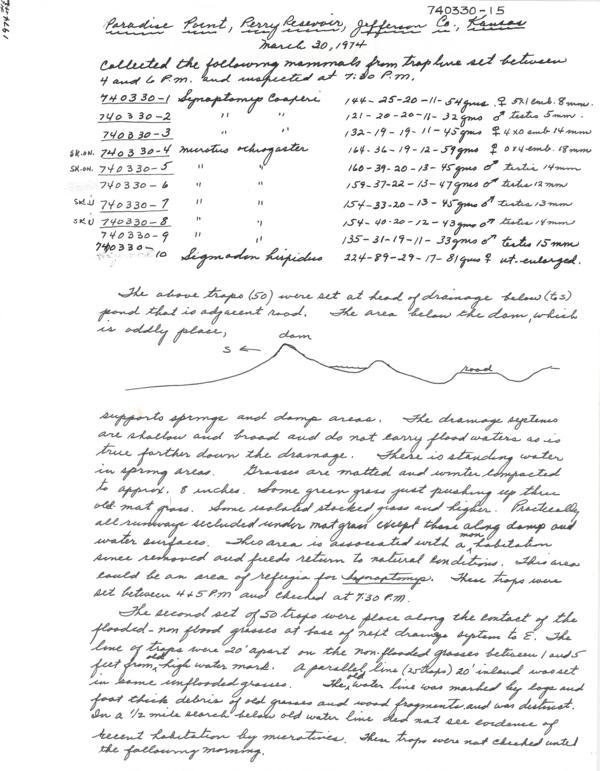 740330-15
1974
Paradise Point, Perry Resevoir, Jefferson Co., Kansas
March 30, 1974
Collected the following mammals from trap line set between
4 and 6 P.M. and inspected at 7:30 P.M.
740330-1 Synaptomys Cooperi 144-25-20-11-54gms. ♀ 5x1 emb. 8mm.
740330-2 " " 121-20-20-11-32gms ♂ testis 5mm.
740330-3 " " 132-19-19-11-45gms ♀ 4x0 emb 14mm
SK.ON. 740330-4 Microtus ochrogaster 164-36-19-12-59gms ♀ 0x4 emb. 18mm
SK.ON. 740330-5 " " 160-39-20-13-45gms ♂ testis 14mm
740330-6 " " 159-37-22-13-47gms ♂ testes 12mm
740330-7 " " 154-33-20-13-45gms ♂ testes 13mm
740330-8 " " 154-40-20-12-43gms ♂ testes 14mm
740330-9 " " 135-31-19-11-33gms ♂ testes 15mm
740330-10 Sigmodon hispidus 224-89-29-17-81gms ♀ ut. enlarged.
The above traps (50) were set at head of drainage below (to S)
pond that is adjacent road. The area below the dam, which
is oddly place,
dam
S ←
road
supports springs and damp areas. The drainage systems
are shallow and broad and do not carry flood waters as is
true farther down the drainage. There is standing water
in spring areas. Grasses are matted and winter compacted
to approx. 8 inches. Some green grass just pushing up thru
old mat grass. Some isolated stocked grass and higher. Practically
all runways secluded under mat grass except those along damp and
water surfaces. This area is associated with a mon habitation
since removed and fields return to natural conditions. This area
could be an area of refugia for Synaptomys. These traps were
set between 4+5 P.M and checked at 7:30 P.M.
The second set of 50 traps were place along the contact of the
flooded-non flood grasses at base of next drainage system to E. The
line of traps were 20' apart on the non-flooded grasses between 1 and 5
feet from old high water mark. A parallel line (25 traps) 20' inland was set
in some unflooded grasses. The old water line was marked by logs and
foot thick debris of old grasses and wood fragments and was distinct.
In a ½ mile search below old water line did not see evidence of
recent habitation by microtines. These traps were not checked until
the following morning.